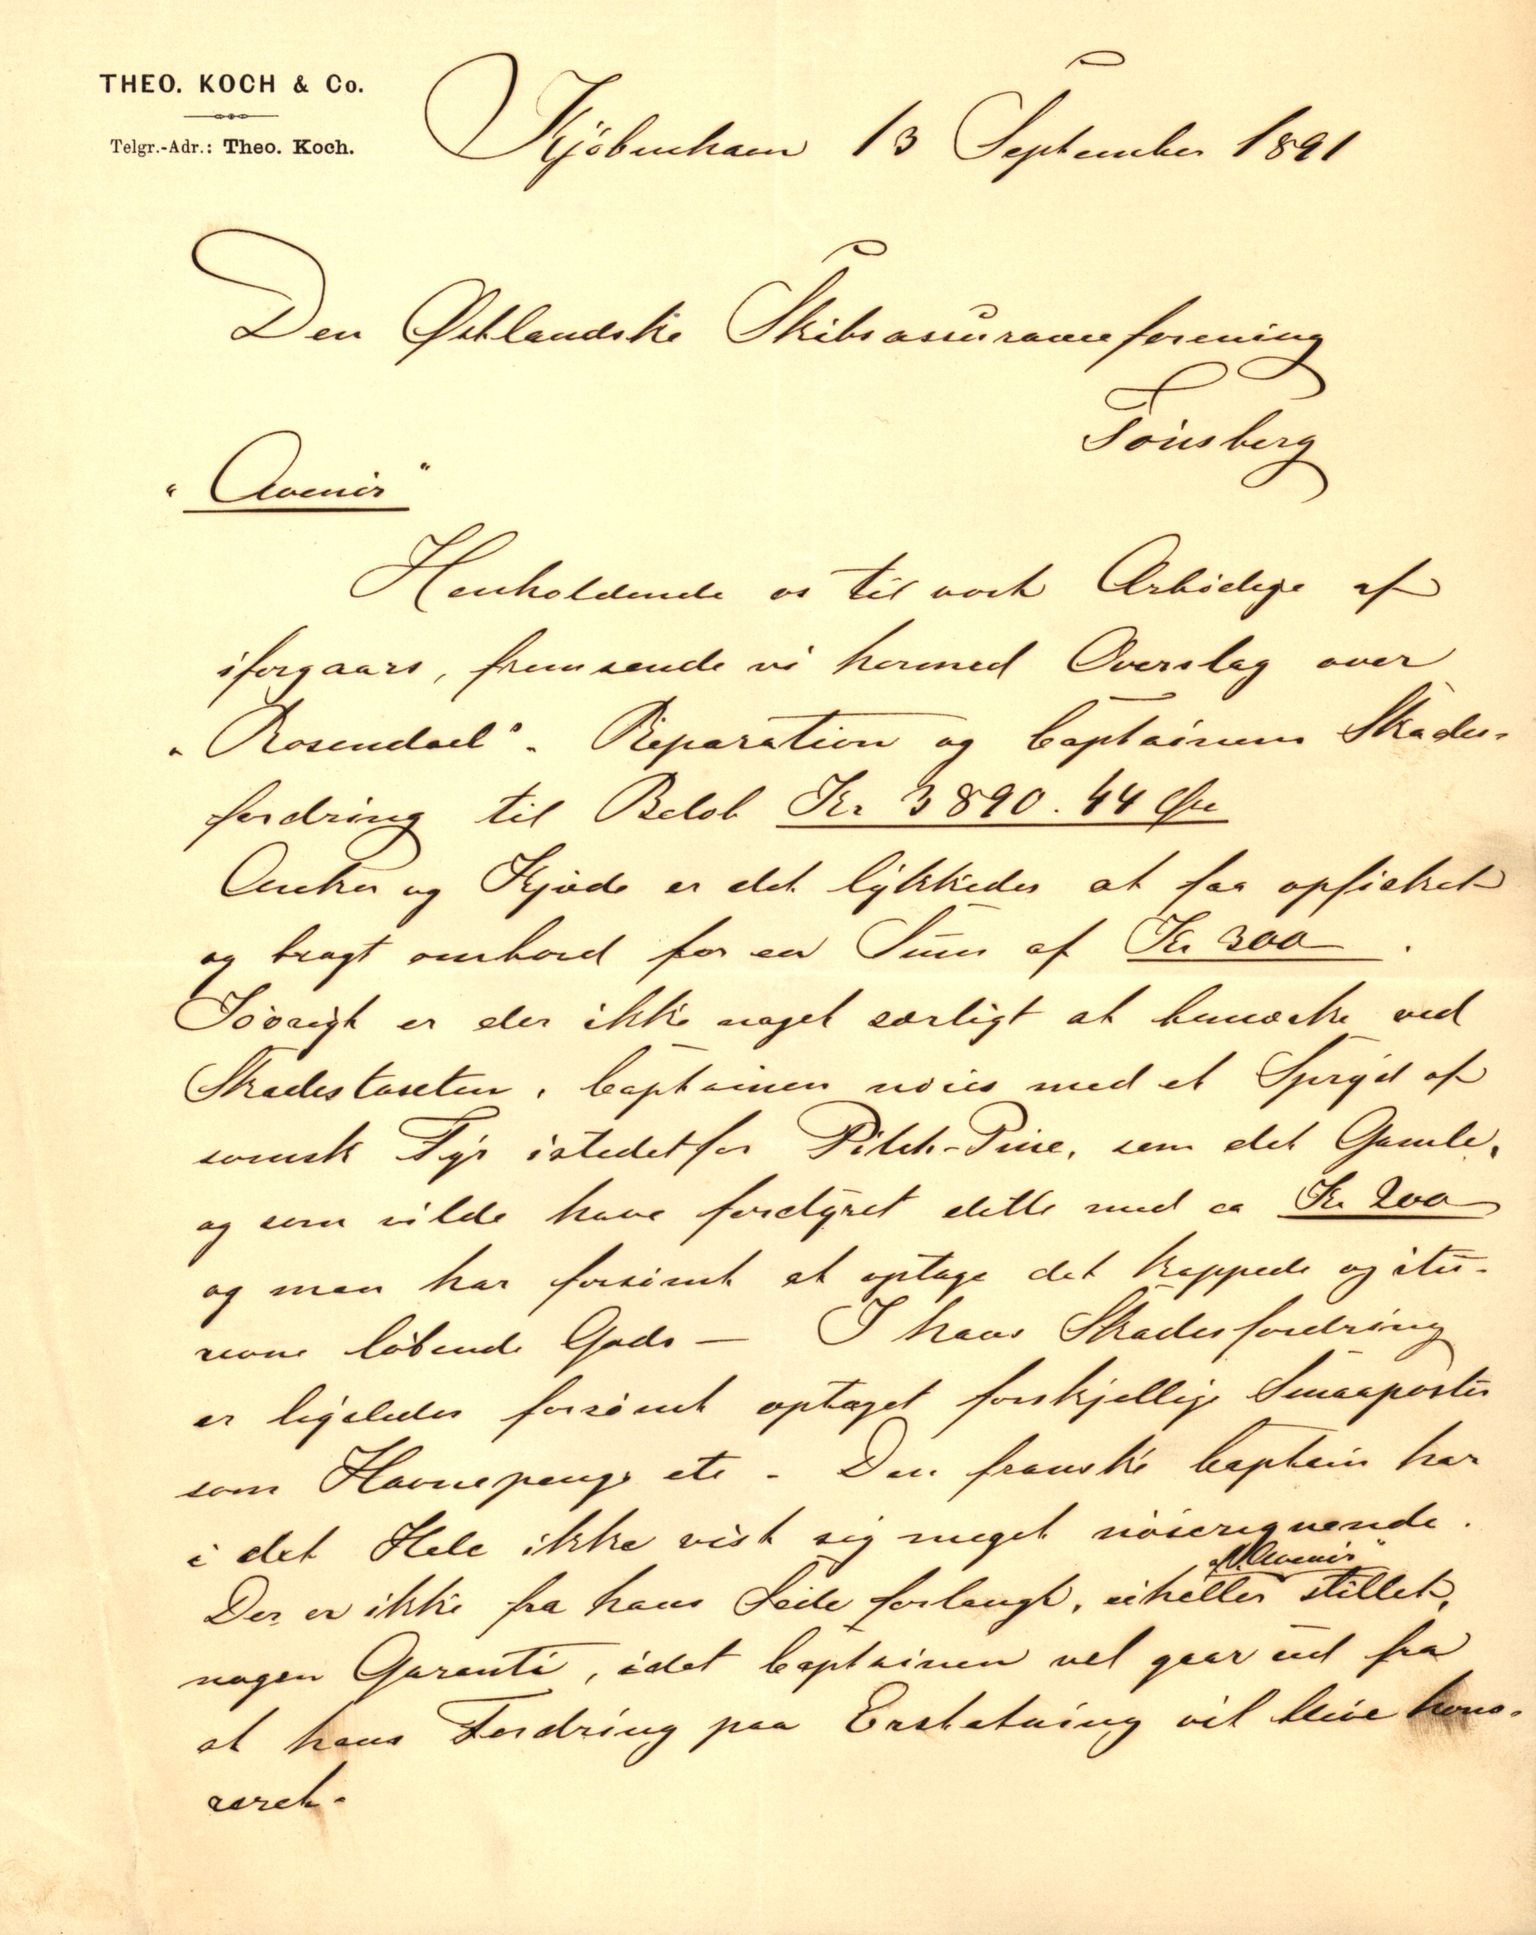 THEO. KOCH & Co.
Telgr.-Adr.: Theo. Koch.
Kjöbenhavn 13 September 1891
Den Østlandske Skibsassuranceforening
Tönsberg
"Avenir"
Henholdende os til vort Ærbödige af
iforgaars, fremsende vi hermed Overslag over
"Rosendael"s Reparation og Captainens Skades-
fordring til Belöb Kr 3890.44 Øre
Anker og Kjæde er det lykkedes at faa opfisket
og bragt ombord for en Sum af Kr 300
Iövrigt er der ikke noget særligt at bemærke ved
Skadestaxten. Captainen nöies med et Spryd af
svensk Fyr istedetfor Pitch-Pine, som det Gamle,
og som vilde have fordyret dette med ca Kr 200
og man har forsömt at optage det kappede og itu-
revne löbende Gods — I hans Skadesfordring
er ligeledes forsömt optaget forskjellige Smaaposter
som Havnepenge etc - Den franske Captain har
i det Hele ikke vist sig meget nöieregnende.
Der er ikke fra hans Side forlangt, eiheller af "Avenir" stillet,
nogen Garanti, idet Captainen vel gaar ud fra
at hans Fordring paa Erstatning vil blive hono-
reret.